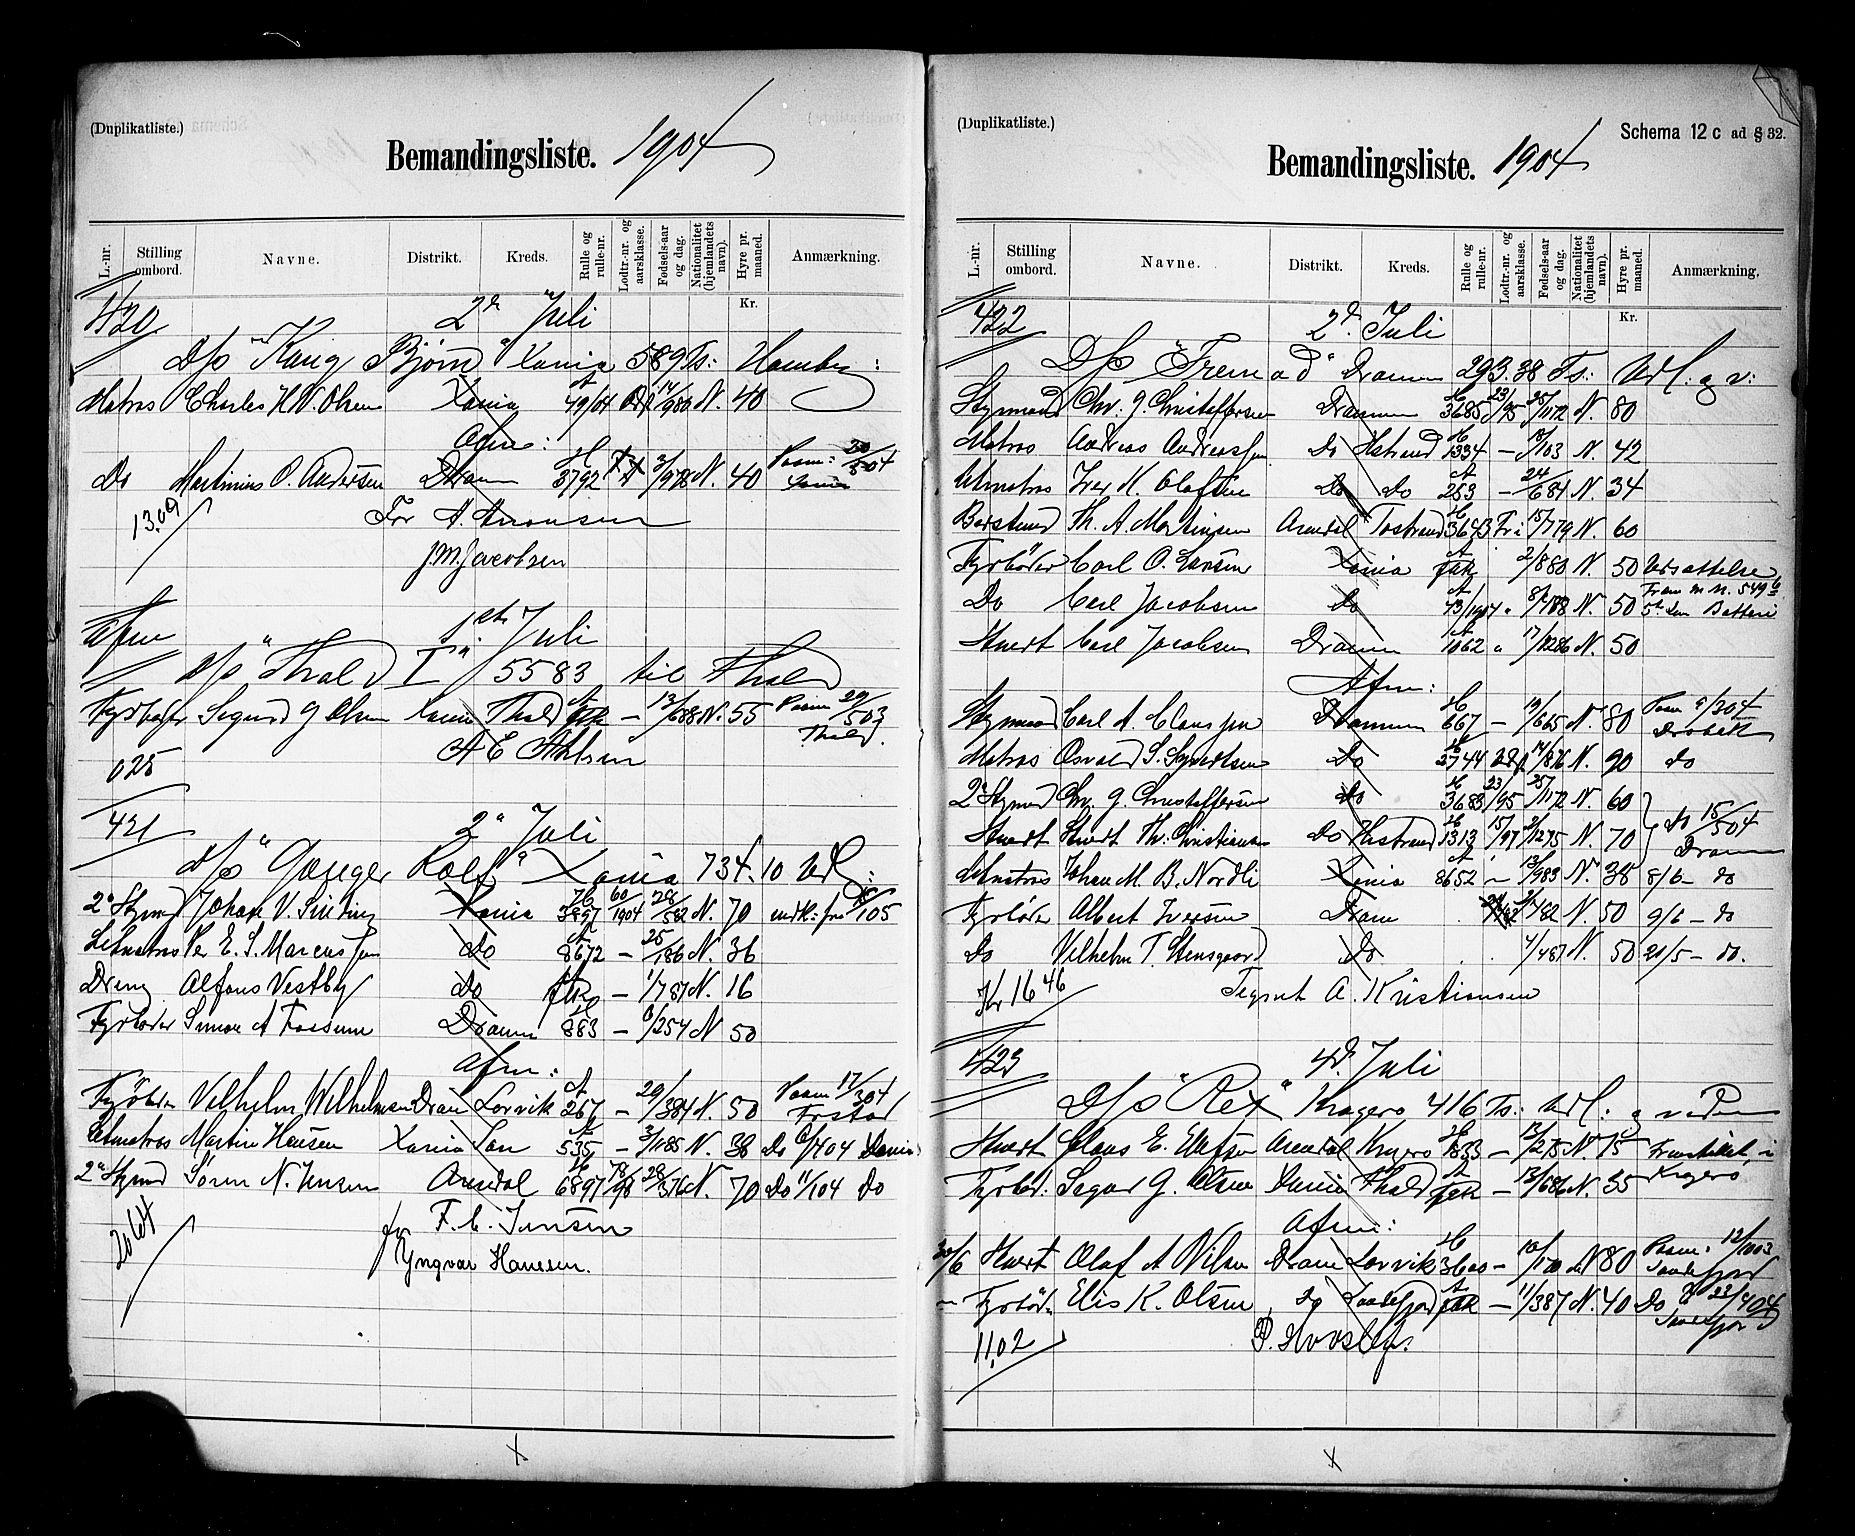 (Duplikatliste.)
Bemandingsliste. 1904
L.-nr. Stilling ombord. Navne. Distrikt. Kreds. Rulle og rulle-nr. Lodtr.-nr. og aarsklasse. Fødsels-aar og dag. Nationalitet (hjemlandets navn). Hyre pr. maaned. Anmærkning.
Kr.
420 2d Juli
D/s "Kong Bjørn" Xania 589 Ts: Hamburg:
Matros Charles H. W. Olsen Xania A 49/04 14/9 80 N. 40
Afm:
Do Martinius O. Andersen Dram H 3792 2/9 78 N. 40 Paam: 20/3 04 Xania
13.09 For A. Aronsen
J. M. Jacobsen
Afm 1ste Juli
D/s "Thold I" 5583 til Thold
Fyrbøder Sigurd G Olsen Xania Thold A ftk — 13/6 88 N. 55 Paam 29/5 03 Thold.
025 A E Ahlsen
421 2d Juli
D/s "Ganger Rolf" Xania 734.10 Udl:
2d Styrmd Johan V. Sinding Xania H 3897 60/1904 28/5 82 N. 70 indk: fra 1/1 05
Letmatros Per E. S. Marcussen do A 8672 — 25/1 86 N. 36
Dreng Alfons Vestby do ftk — 1/7 87 N. 16
Fyrbøder Simon A Fossum Dramm H 883 — 6/2 54 N 50
Afm:
Fyrbøder Vilhelm Wilhelmsen Dram Lorvik A 267 — 29/3 84 N. 50 Paam 17/3 04 Frstad
Letmatros Martin Hansen Xania Son A 535 — 3/11 85 N. 38 Do 6/4 04 Xania
2d Styrmd Søren N. Jensen Arendal H 6897 78/98 28/3 76 N. 70 Do 11/1 04 Do
20 64 F. C. Jensen
for Yngvar Hansen.
(Duplikatliste.)
Schema 12 c ad § 32.
Bemandingsliste. 1904
L.-nr. Stilling ombord. Navne. Distrikt. Kreds. Rulle og rulle-nr. Lodtr.-nr. og aarsklasse. Fødsels-aar og dag. Nationalitet (hjemlandets navn). Hyre pr. maaned. Anmærkning.
Kr.
422 2d Juli
D/s "Fremad" Dramm 293.38 Ts: Udl: og v:
Styrmand Chr. G. Christoffersen Drammen H 3685 23/95 25/11 72 N. 80
Matros Andreas Andreassen Do Hstrand H 1334 — N. 42
Letmatros Iver K. Olafsen Do Do A 253 — 24/6 84 N. 34
Bøstmand Th. A. Mortinsen Arendal Tostrand H 3643 Fri 15/7 79 N. 60
Fyrbøder Carl O. Larsen Xania A ftk 2/8 80 N. 50 Udsættelse
Do Carl Jacobsen Do A 43/1904 " 8/4 88 N. 50 Fram M N. 549 5te Batteri
Stuert Carl Jacobsen Dramm A 1062 " 17/12 86 N. 50
Afm:
Styrmand Carl A. Claussen Drammen H 667 — 19/6 65 N. 80 Paam 9/3 04 Drøbak
Matros Osvald S. Syvertsen Do H 3744 281 14/8 76 N. 90 do
2d Styrmd Chr. G. Christoffersen do H 3683 23/95 25/11 72 N. 60 } do 15/5 04 Dramm
Stuert Hnrdt Th. Christiansen Do Hstrand H 1313 15/97 2/12 75 N. 70
Letmatros Johan M. B. Nordli Xania A 8652 — 13/9 83 N. 38 8/6 — do
Fyrbøder Albert Iversen Dram 82 N. 50 9/6 — do
Do Vilhelm T. Stensgaard Do 4/4 87 N. 50 21/5 — do.
Kr 16 46 Tegnet A. Kristiansen
423 4d Juli
D/s "Rex" Kragerø 416 Ts: Udl: og viden
Stuert Claus E. Ellefsen Arendal Kragerø H 1833 — 13/2 75 N. 75 Frastiket i Kragerø
Fyrbød: Sigur G. Olsen Xania Thold A ftk — 13/6 86 N. 35
Afm:
30/6 Stuert Olaf A Nilsen Dram Lorvik H 3600 — 10/1 70 N. 80 Paam: 12/10 03 Sandefjord
— Fyrbød. Elis K. Olsen Do Sandefjord A ftk — 11/3 87 N. 40 Do 23/4 04 Sandefjord
11.02 P. Hvosley.